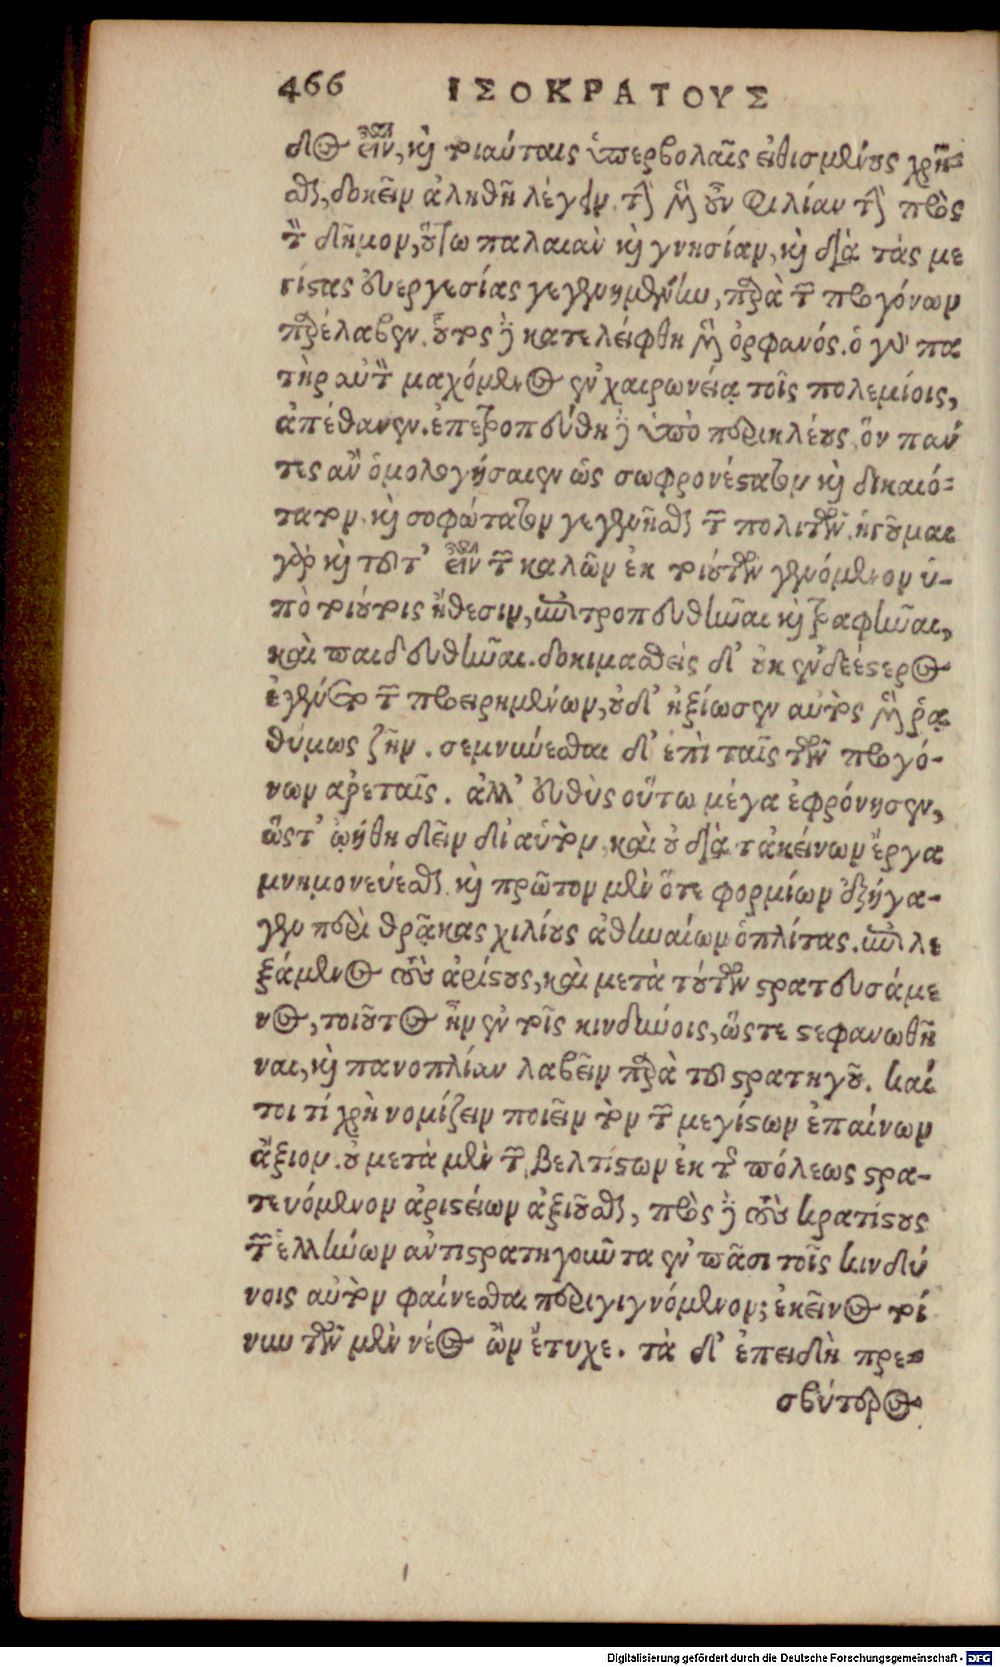 466 ΙΣΟΚΡΑΤΟΥΣ
διος εἶναι, καὶ τοιαύταις ὑπερβολαῖς εἰθισμένους χρῆ-
σθαι, δοκεῖν ἀληθῆ λέγειν. τὴν μὲν οὖν φιλίαν τὴν πρὸς
τὸν δῆμον, οὕτω παλαιὰν καὶ γνησίαν, καὶ διὰ τὰς με
γίστας εὐεργεσίας γεγενημένην, παρὰ τῶν προγόνων
παρέλαβεν. οὗτος δὲ κατελείφθη μὲν ὀρφανός. ὁ γὰρ πα
τὴρ αὐτοῦ μαχόμενος ἐν χαιρωνείᾳ τοῖς πολεμίοις,
ἀπέθανεν. ἐπετροπεύθη δὲ ὑπὸ περικλέους, ὃν πάν
τες ἂν ὁμολογήσαιεν ὡς σωφρονέστατον καὶ δικαιό-
τατον, καὶ σοφώτατον γεγενῆσθαι τῶν πολιτῶν. ἡγοῦμαι
γὰρ καὶ τοῦτ' εἶναι τῶν καλῶν ἐκ τοιούτων γενόμενον ὑ-
πὸ τοιούτοις ἤθεσιν, ἐπιτροπευθῆναι καὶ τραφῆναι,
καὶ παιδευθῆναι. δοκιμασθεὶς δ' οὐκ ἐνδεέστερος
ἐγένετο τῶν προειρημένων, οὐδ' ἠξίωσεν αὐτὸς μὲν ῥᾳ
θύμως ζῆν. σεμνύνεσθαι δ' ἐπὶ ταῖς τῶν προγό-
νων ἀρεταῖς. ἀλλ' εὐθὺς οὕτω μέγα ἐφρόνησεν,
ὥστ' ᾠήθη δεῖν δι' αὑτὸν, καὶ οὐ διὰ τἀκείνων ἔργα
μνημονεύεσθαι. καὶ πρῶτον μὲν ὅτε φορμίων ἐξήγα-
γεν περὶ θρᾴκας χιλίους ἀθηναίων ὁπλίτας. ἐπιλε
ξάμενος τοὺς ἀρίστους, καὶ μετὰ τούτων στρατευσάμε
νος, τοιοῦτος ἦν ἐν τοῖς κινδύνοις, ὥστε στεφανωθῆ
ναι, καὶ πανοπλίαν λαβεῖν παρὰ τοῦ στρατηγοῦ. καί
τοι τί χρὴ νομίζειν ποιεῖν τὸν τῶν μεγίστων ἐπαίνων
ἄξιον. οὐ μετὰ μὲν τῶν βελτίστων ἐκ τῆς πόλεως στρα-
τευόμενον ἀριστείων ἀξιοῦσθαι, πρὸς δὲ τοὺς κρατίστους
τῶν ἑλλήνων ἀντιστρατηγοῦντα ἐν πᾶσι τοῖς κινδύ
νοις αὐτὸν φαίνεσθαι περιγιγνόμενον; ἐκεῖνος τοί
νυν τῶν μὲν νέος ὢν ἔτυχε. τὰ δ' ἐπειδὴ πρε-
σβύτερος
Digitalisierung gefördert durch die Deutsche Forschungsgemeinschaft - DFG